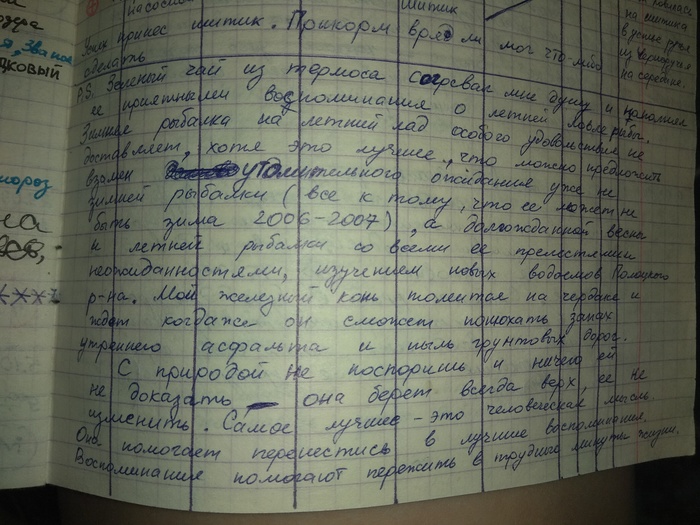 насосно
шитик
рвалась
на шитика
в устье ручья
на середине.
Улик принес шитик. Прикорм вряд ли мог что-либо
сделать
P.S. Зеленый чай из термоса согревал мне душу и наполнял
ее приятными воспоминания о летней ловле рыбы.
Зимняя рыбалка на летний лад особого удовольствия не
доставляет, хотя это лучшее, что можно предложить
взамен утомительного ожидания уже не
зимней рыбалки (все к тому, что ее может не
быть зима 2006-2007), а долгожданной весны
и летней рыбалки со всеми ее прелестями
неожиданностями, изучением новых водоемов Полоцкого
р-на. Мой железный конь томится на чердаке и
ждет когда же он сможет понюхать запах
утреннего асфальта и пыль грунтовых дорог.
С природой не поспоришь и ничего ей
не доказать – она берет всегда верх, ее не
изменить. Самое лучшее – это человеческая мысль
Она помогает перенестись в лучшие воспоминания.
Воспоминания помогают пережить в трудного минуты жизни.
озера
я, Звана
дковый
мороз
на